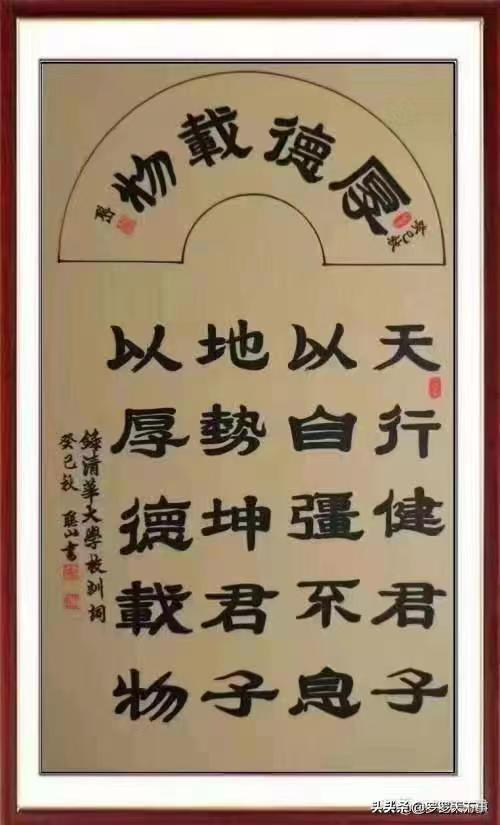 癸巳秋
厚德載物
天行健君子
以自彊不息
地勢坤君子
以厚德載物
清華大學校訓詞
癸巳秋 山書
头条